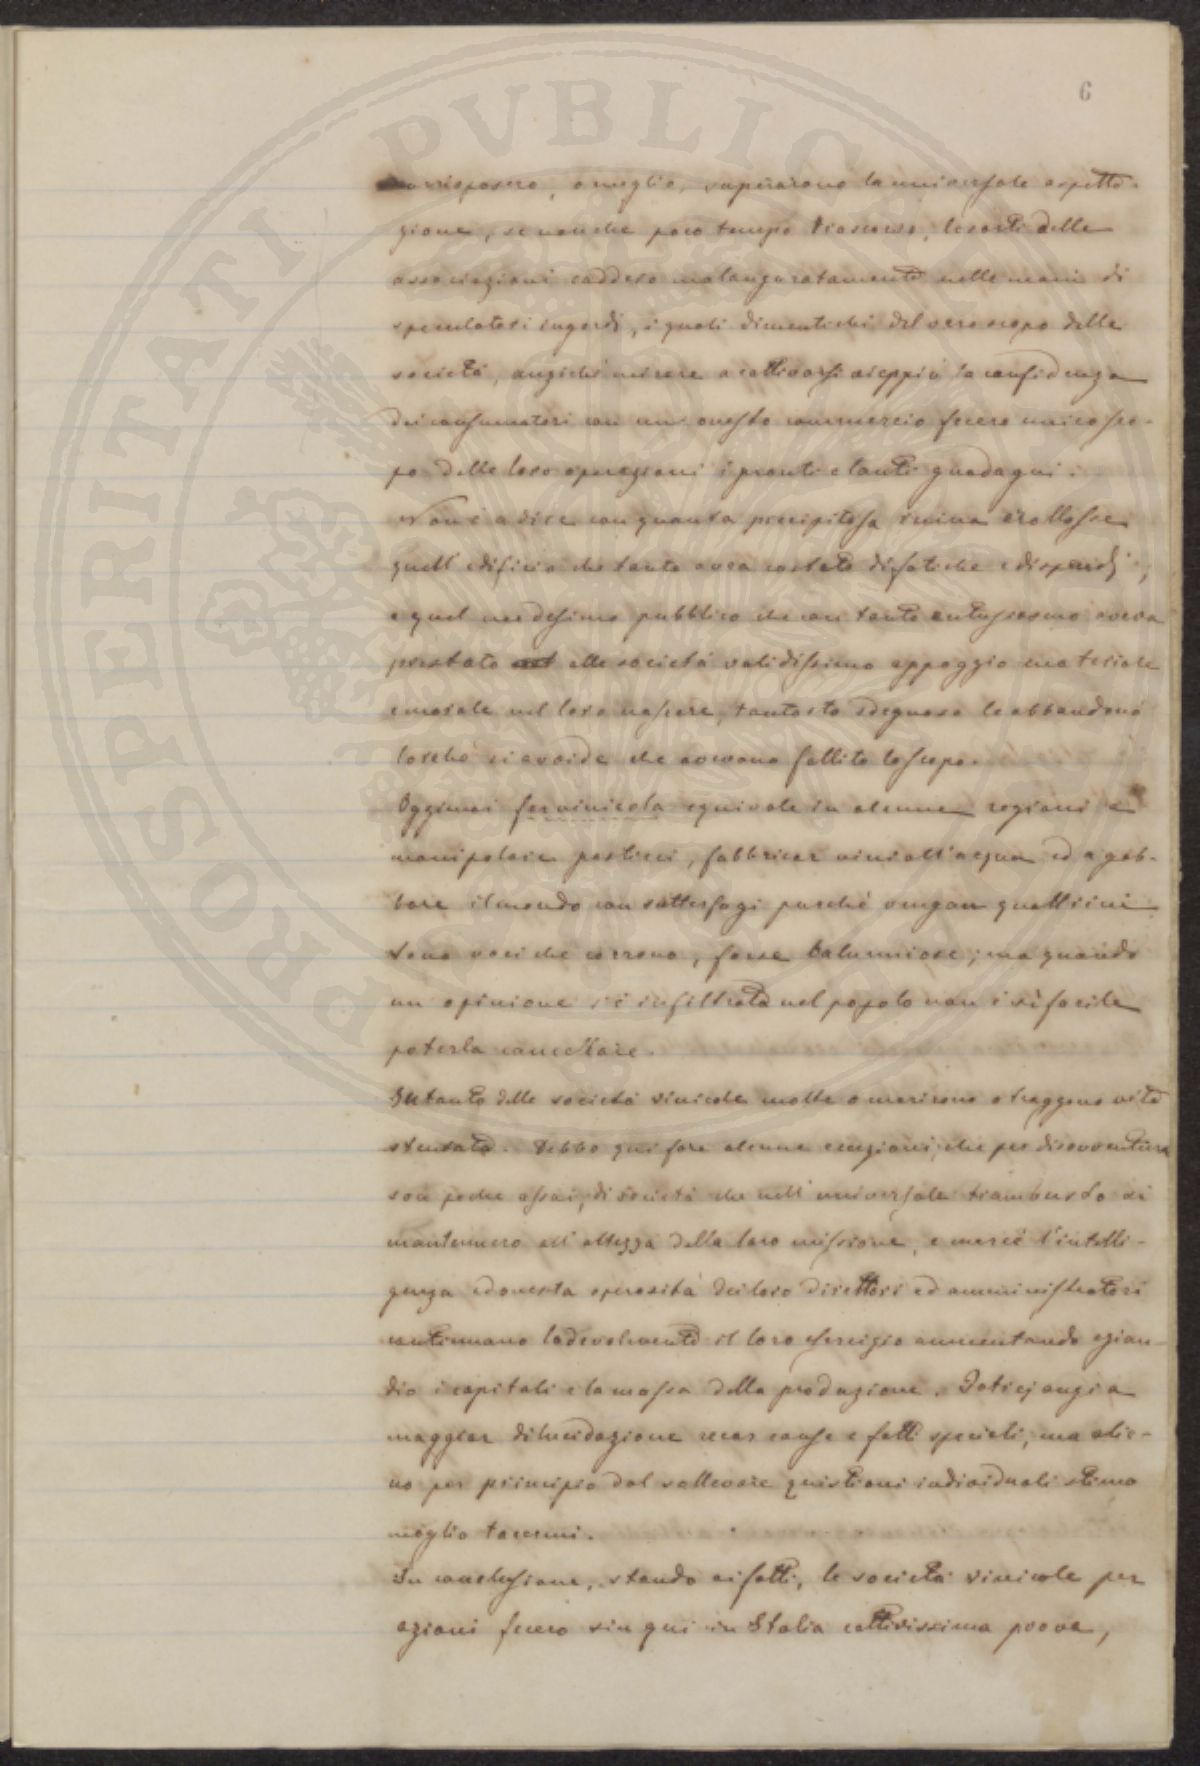 6
corrisposero, o meglio, superarono la universale aspetta-
zione, se non che poco tempo trascorso, le sorti delle
associazioni caddero malauguratamente nelle mani di
speculatori ingordi, i quali dimentichi del vero scopo delle
società, anziché mirare a cattivarsi vieppiù la confidenza
dei consumatori con un onesto commercio fecero unico sco-
po delle loro operazioni i pronti e lauti guadagni.
Non è a dire con quanta precipitosa ruina crollasse
quell'edificio che tanto avea costato di fatiche e dispendj,
e quel medesimo pubblico che con tanto entusiasmo aveva
prestato alle società validissimo appoggio materiale
e morale nel loro nascere, tantosto sdegnoso le abbandonò
lorché si avvide che avevano fallito lo scopo.
Oggimai far vinicola equivale in alcune regioni a
manipolare pasticci, fabbricar vini coll'acqua ed a gab-
bare il mondo con sotterfugi purché vengan quattrini
Sono voci che corrono, forse calunniose; ma quando
un opinione s'è infiltrata nel popolo non è sì facile
poterla cancellare.
Intanto delle società vinicole molte o morirono o traggono vita
stentata. Debbo qui fare alcune eccezioni, che per disavventura
son poche assai, di società che nell'universale trambusto si
mantennero all'altezza della loro missione, e mercé l'intelli-
genza ed onesta operosità dei loro direttori ed amministratori
continuano lodevolmente il loro esercizio aumentando ezian-
dio i capitali e la massa della produzione. Potrej anzi a
maggior dilucidazione recar cause e fatti speciali, ma alie-
no per principio dal sollevare quistioni individuali stimo
meglio tacermi.
In conclusione, stando ai fatti, le società vinicole per
azioni fecero sin qui in Italia cattivissima prova,
PROSPERITATI PVBLICAE